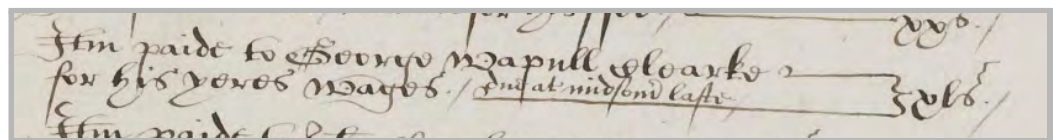 xxs./
Itm paide to George Wapull Clearke
for his yeres wages./ due at midsom̄ laste xls./
Itm paide